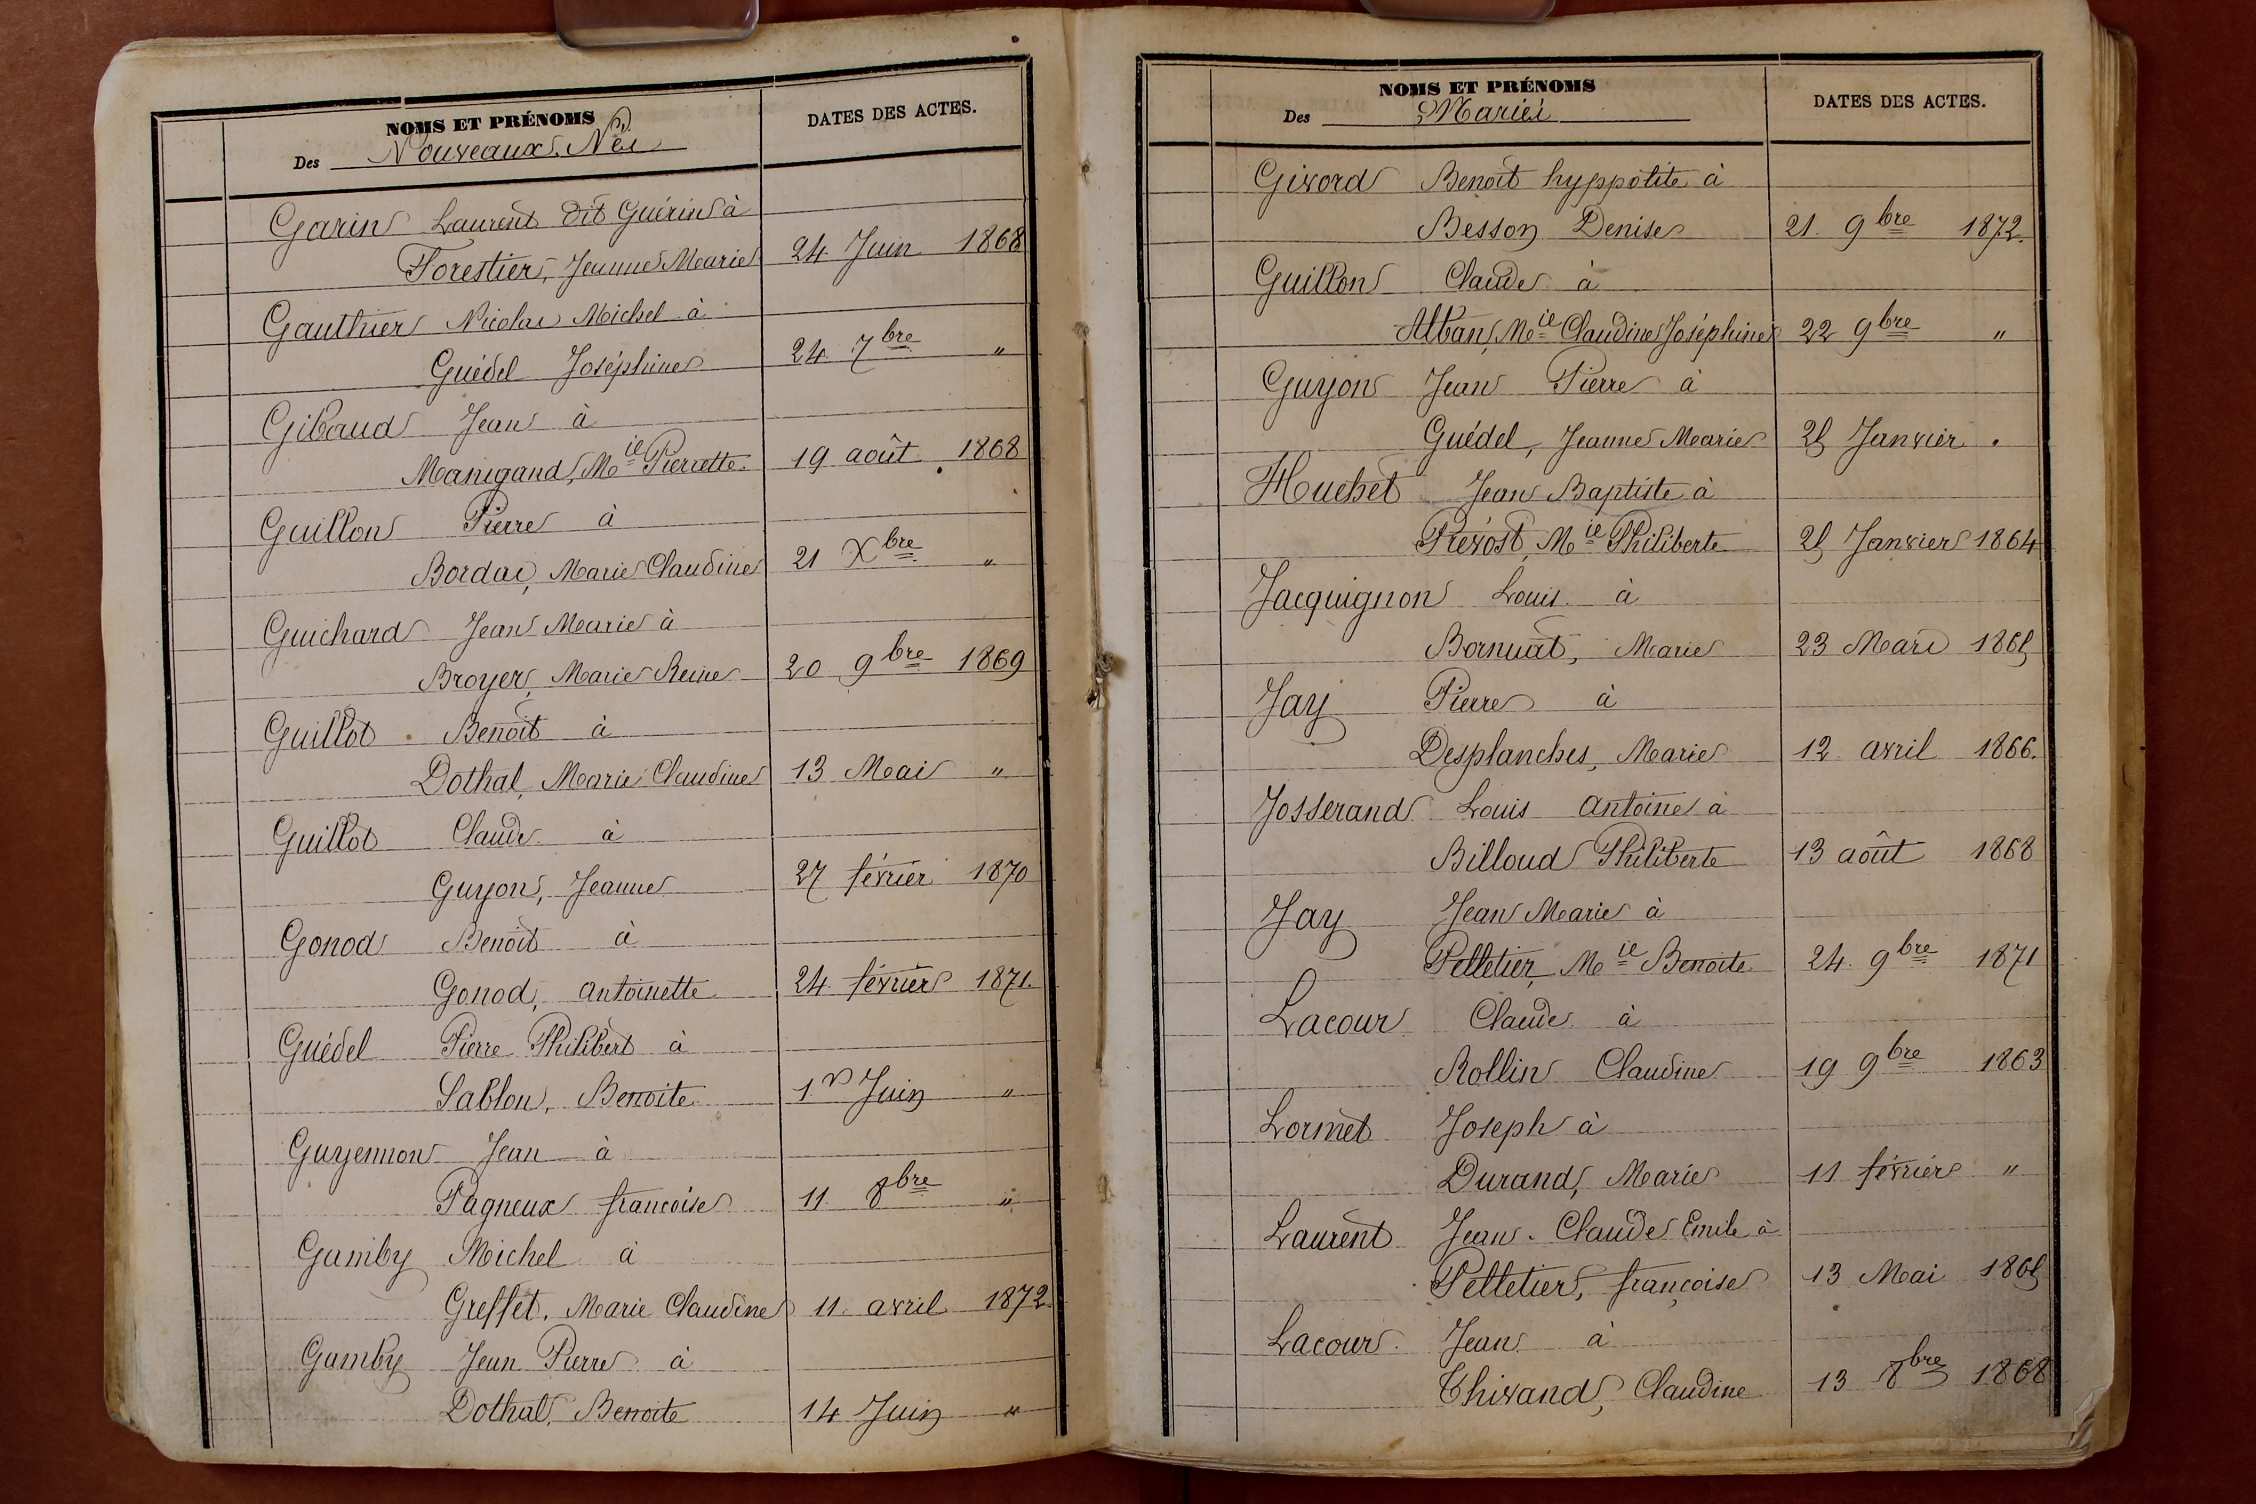 NOMS ET PRÉNOMS
Des Nouveaux Nés
DATES DES ACTES.
Garin Laurent dit Guérin à
Forestier, Jeanne Marie 24 Juin 1868
Gauthier Nicolas Michel à
Guédel Joséphine 24 7bre "
Gibaud Jean à
Manigand, Mie Pierrette 19 août 1868
Guillon Pierre à
Bordas, Marie Claudine 21 Xbre "
Guichard Jean Marie à
Broyer, Marie Reine 20 9bre 1869
Guillot Benoît à
Dothal, Marie Claudine 13 Mai "
Guillot Claude à
Guyon, Jeanne 27 février 1870
Gonod Benoît à
Gonod, Antoinette 24 février 1871.
Guédel Pierre Philibert à
Sablon, Benoite 1er Juin "
Guyennon Jean à
Pagneux françoise 11 8bre "
Gamby Michel à
Greffet, Marie Claudine 11 avril 1872.
Gamby Jean Pierre à
Dothal, Benoite 14 Juin "
NOMS ET PRÉNOMS
Des Mariés
DATES DES ACTES.
Givord Benoît hyppolite à
Besson Denise 21 9bre 1872.
Guillon Claude à
Alban, Mie Claudine Joséphine 22 9bre "
Guyon Jean Pierre à
Guédel, Jeanne Marie 25 Janvier .
Huchet Jean Baptiste à
Prévost, Mie Philiberte 25 Janvier 1864
Jacquignon Louis à
Bornuat, Marie 23 Mars 1865
Jay Pierre à
Desplanches, Marie 12 avril 1866.
Josserand Louis Antoine à
Billoud Philiberte 13 août 1868
Jay Jean Marie à
Pelletier, Mie Benoite 24 9bre 1871
Lacour Claude à
Rollin Claudine 19 9bre 1863
Lormet Joseph à
Durand, Marie 11 février "
Laurent Jean Claude Emile à
Pelletier, françoise 13 Mai 1865
Lacour Jean à
Thivand, Claudine 13 8bre 1868